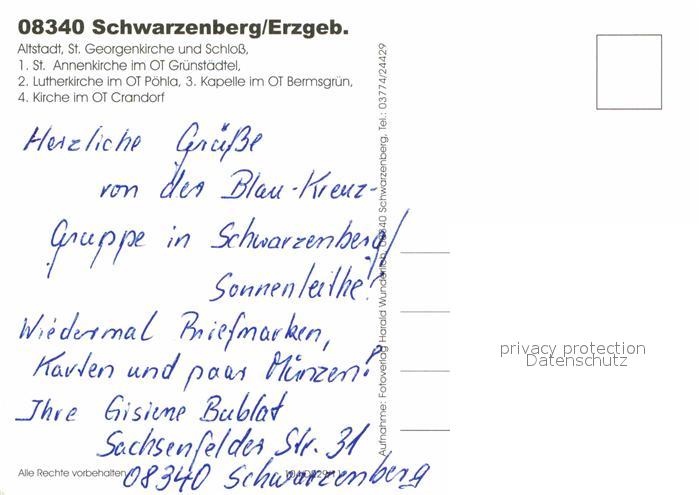 08340 Schwarzenberg/Erzgeb.
Altstadt, St. Georgenkirche und Schloß,
1. St. Annenkirche im OT Grünstädtel,
2. Lutherkirche im OT Pöhla, 3. Kapelle im OT Bermsgrün,
4. Kirche im OT Crandorf
Herzliche Grüße
von der Blau-Kreuz-
Gruppe in Schwarzenberg/
Sonnenleithe!
Wiedermal Briefmarken,
Karten und paar Münzen!
Ihre Gisiene Bublat
Sachsenfelder Str. 31
08340 Schwarzenberg
Alle Rechte vorbehalten
Aufnahme: Fotoverlag Harald Wunderlich, 08340 Schwarzenberg, Tel.: 03774/24429
privacy protection
Datenschutz